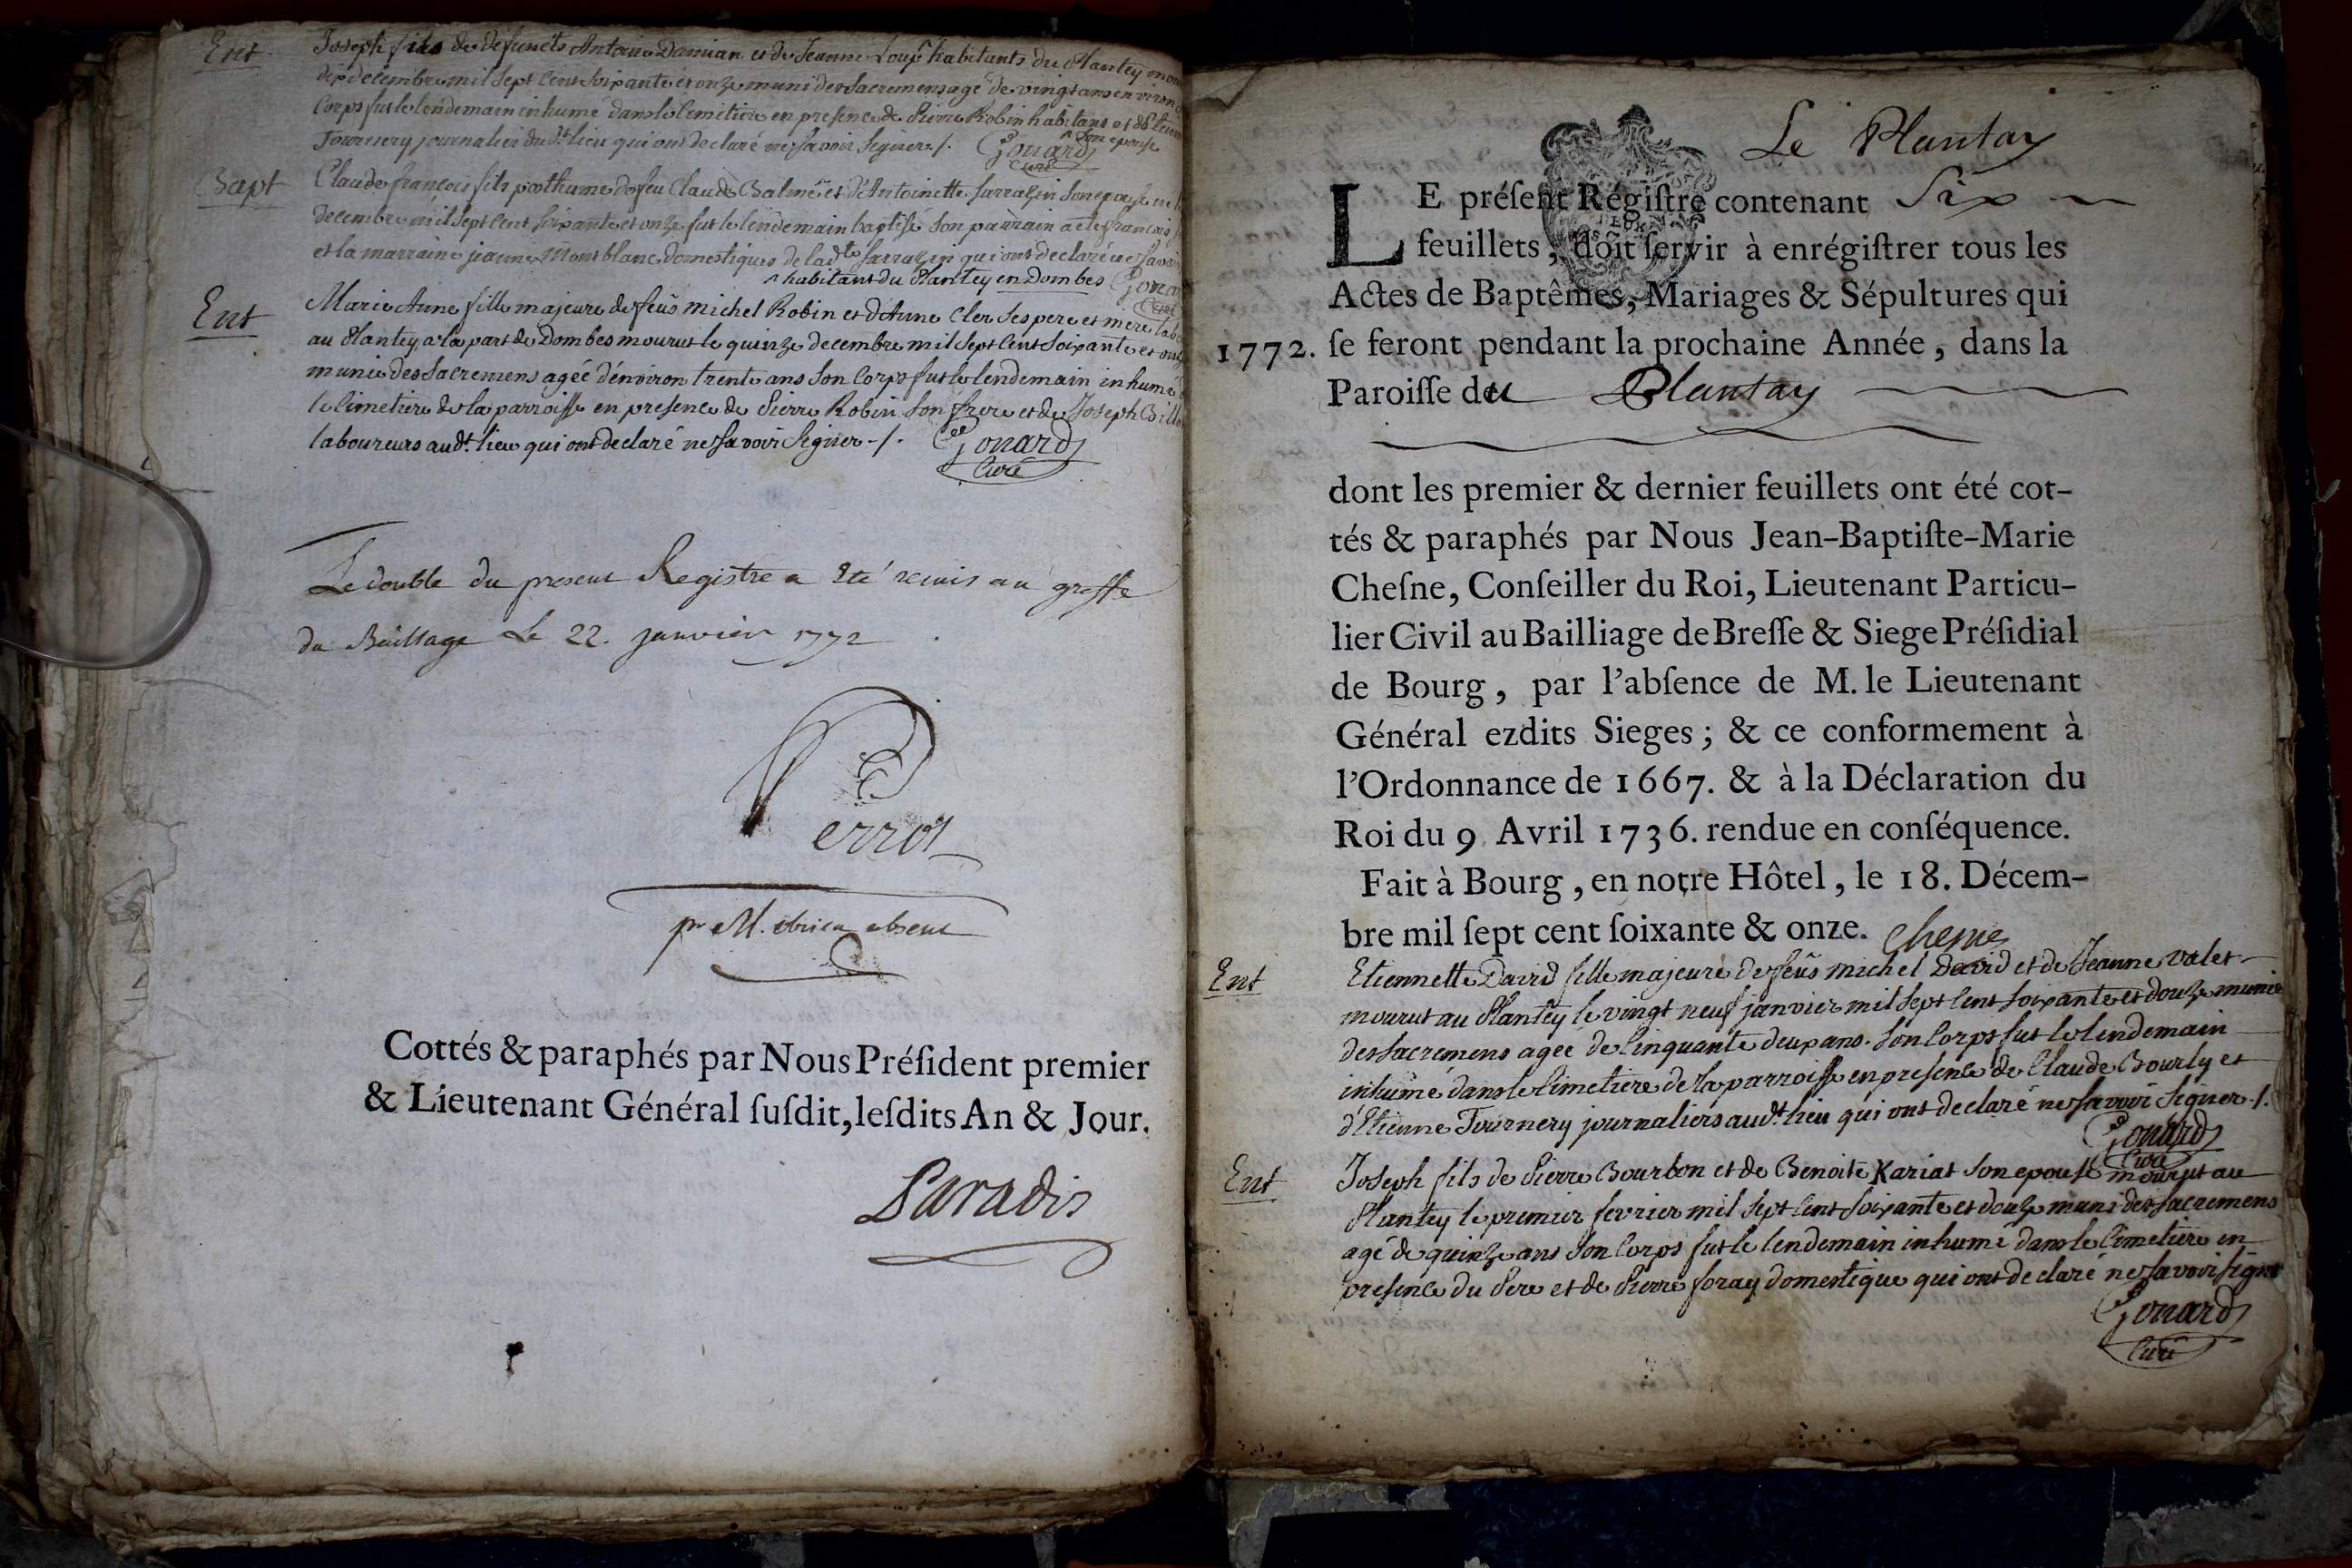 Ent
Joseph fils de defuncts Antoine Damian et de Jeanne Loup habitants du Plantey
dix decembre mil sept cent soixante et onze muni des sacremens agé de vingt ans environ
corps fut le lendemain inhumé dans le cimitiere en presence de Pierre Robin habitans et d'Etienne
Tournery journalier du dt. lieu qui ont declaré ne savoir signer ./.
Gonard
curé
^ son epouse
Bapt
Claude françois fils posthume de feu Claude Balme et d'Antoinette Sarrazin son epouse
decembre mil sept cent soixante et onze fut le lendemain baptisé son parrain a eté françois
et la marraine jeanne Montblanc domestiques de la dte. Sarrazin qui ont declaré ne savoir
^ habitant du Plantey en Dombes
Ent
Marie Anne fille majeure de feüs michel Robin et d'Anne Cler ses pere et mere
au Plantey a la part de Dombes mourut le quinze decembre mil sept cent soixante et onze
munie des sacremens agée d'environ trente ans son corps fut le lendemain inhumé
le cimetiere de la parroisse en presence de Pierre Robin son frere et de Joseph
laboureurs audt. lieu qui ont declaré ne savoir signer ./.
Gonard
Curé
Le double du present Registre a été remis au greffe
du Baillage Le 22. janvier 1772
Perrot
pr M. absent
Cottés & paraphés par Nous Préſident premier
& Lieutenant Général ſuſdit, leſdits An & Jour.
Paradis
Le Plantay
LE préſent Régiſtre contenant Six
feuillets, doit ſervir à enrégiſtrer tous les
Actes de Baptêmes, Mariages & Sépultures qui
1772. ſe feront pendant la prochaine Année, dans la
Paroiſſe du Plantay
dont les premier & dernier feuillets ont été cot-
tés & paraphés par Nous Jean-Baptiſte-Marie
Cheſne, Conſeiller du Roi, Lieutenant Particu-
lier Civil au Bailliage de Breſſe & Siege Préſidial
de Bourg, par l'abſence de M. le Lieutenant
Général ezdits Sieges; & ce conformement à
l'Ordonnance de 1667. & à la Déclaration du
Roi du 9 Avril 1736. rendue en conſéquence.
Fait à Bourg, en notre Hôtel, le 18. Décem-
bre mil ſept cent ſoixante & onze. Chesne
Ent
Etiennette David fille majeure de feüs michel David et de Jeanne Valet
mourut au Plantey le vingt neuf janvier mil sept cent soixante et douze munie
des sacremens agee de cinquante deux ans. son corps fut le lendemain
inhumé dans le cimetiere de la parroisse en presence de Claude Bourly et
d'Etienne Tournery journaliers audt. lieu qui ont declaré ne savoir signer ./.
Gonard
Curé
Ent
Joseph fils de Pierre Bourbon et de Benoite Kariat son epouse mourut au
Plantey le premier fevrier mil sept cent soixante et douze muni des sacremens
agé de quinze ans son corps fut le lendemain inhumé dans le cimetiere en
presence du Pere et de Pierre foray domestique qui ont declaré ne savoir signer
Gonard
Curé